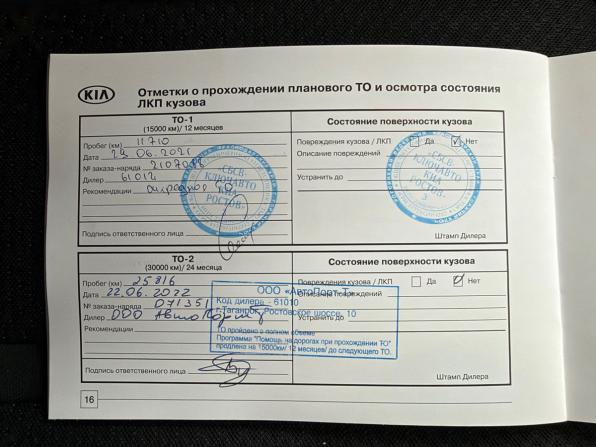 KIA
Отметки о прохождении планового ТО и осмотра состояния
ЛКП кузова
ТО-1
(15000 км)/ 12 месяцев
Состояние поверхности кузова
Пробег (км) 11710
Дата 29.06.2021
№ заказа-наряда
Дилер 61012
Рекомендации
Подпись ответственного лица
Повреждения кузова / ЛКП Да Нет
Описание повреждений
Устранить до
Штамп Дилера
«СБСВ-
КЛЮЧАВТО
КИА
РОСТОВ»
«СБСВ-
КЛЮЧАВТО
КИА
РОСТОВ»
3
ТО-2
(30000 км)/ 24 месяца
Состояние поверхности кузова
Пробег (км) 25816
Дата 22.06.2022
№ заказа-наряда 071351
Дилер ООО АвтоПорт-Т
Рекомендации
Подпись ответственного лица
Повреждения кузова / ЛКП Да Нет
Описание повреждений
Устранить до
Штамп Дилера
ООО «АвтоПорт-Т»
Код дилера - 61010
г.Таганрог, Ростовское шоссе, 10
ТО пройдено в полном объеме
Программа "Помощь на дорогах при прохождении ТО"
продлена на 15000км/ 12 месяцев/ до следующего ТО.
16